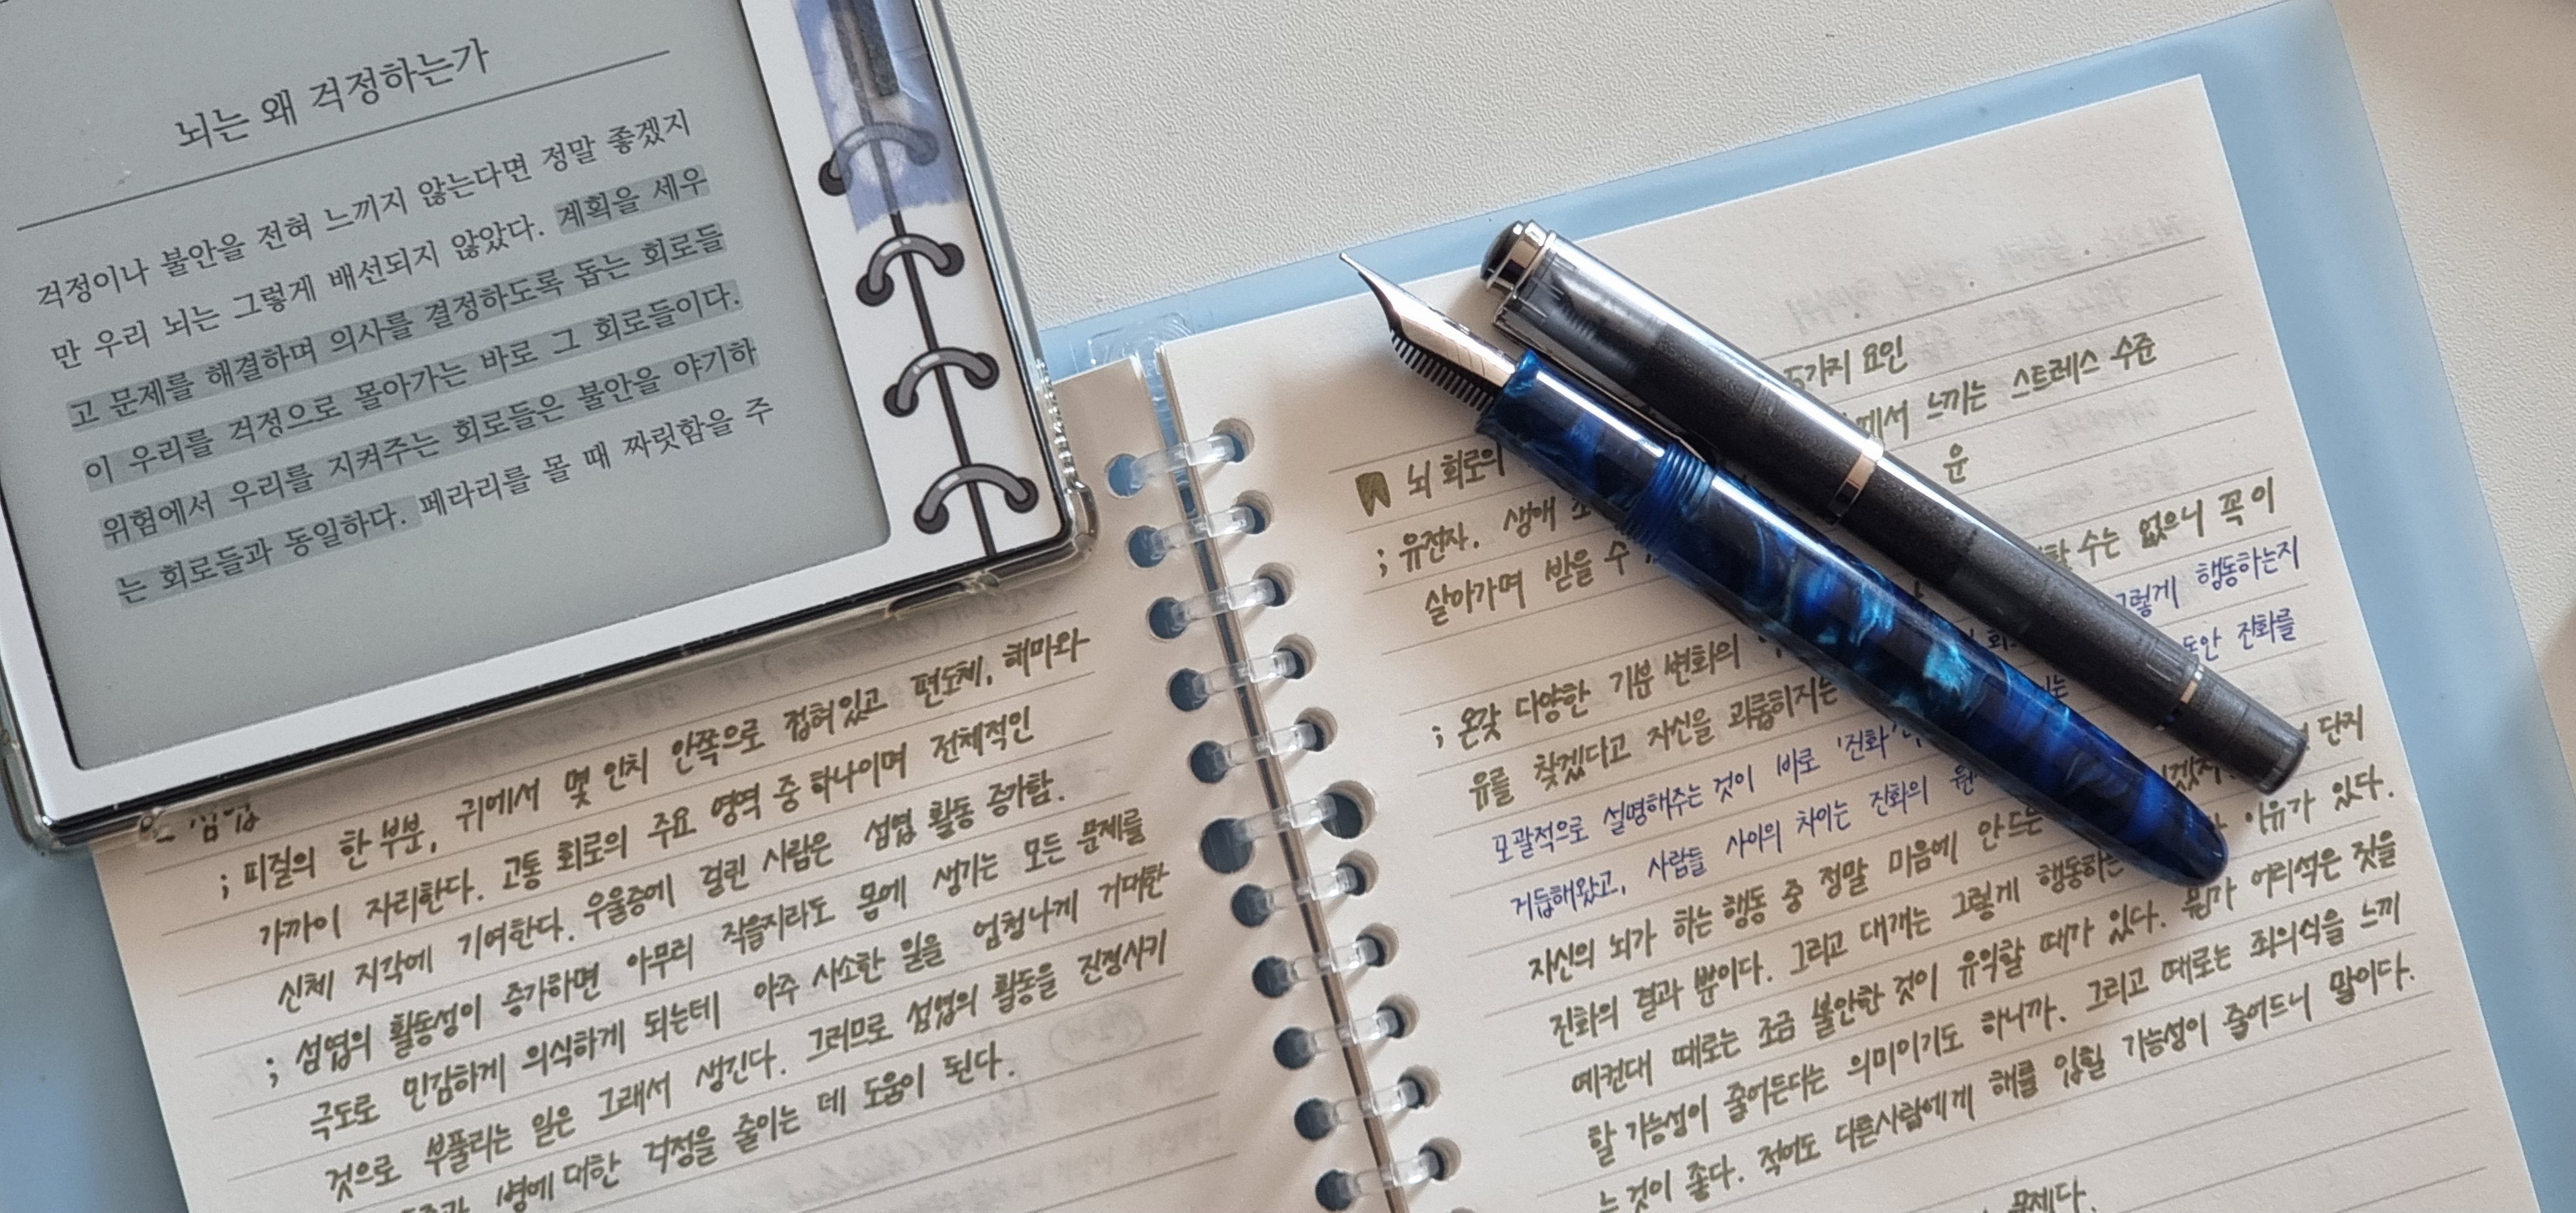 뇌는 왜 걱정하는가
걱정이나 불안을 전혀 느끼지 않는다면 정말 좋겠지
만 우리 뇌는 그렇게 배선되지 않았다. 계획을 세우
고 문제를 해결하며 의사를 결정하도록 돕는 회로들
이 우리를 걱정으로 몰아가는 바로 그 회로들이다.
위험에서 우리를 지켜주는 회로들은 불안을 야기하
는 회로들과 동일하다. 페라리를 몰 때 짜릿함을 주
섬엽
; 피질의 한 부분, 귀에서 몇 인치 안쪽으로 접혀있고 편도체, 해마와
가까이 자리한다. 고통 회로의 주요 영역 중 하나이며 전체적인
신체 지각에 기여한다. 우울증에 걸린 사람은 섬엽 활동 증가함.
; 섬엽의 활동성이 증가하면 아무리 작을지라도 몸에 생기는 모든 문제를
극도로 민감하게 의식하게 되는데 아주 사소한 일을 엄청나게 거대한
것으로 부풀리는 일은 그래서 생긴다. 그러므로 섬엽의 활동을 진정시키
병에 대한 걱정을 줄이는 데 도움이 된다.
뇌 회로의 5가지 요인
; 유전자. 생애 에서 느끼는 스트레스 수준
살아가며 받을 수 운
; 온갖 다양한 기분 변화의 할 수는 없으니 꼭 이
유를 찾겠다고 자신을 괴롭히지는 그렇게 행동하는지
모괄적으로 설명해주는 것이 바로 '진화' 동안 진화를
거듭해왔고, 사람들 사이의 차이는 진화의 단지
자신의 뇌가 하는 행동 중 정말 마음에 안 드는
진화의 결과 뿐이다. 그리고 대개는 그렇게 행동하는 이유가 있다.
예컨대 때로는 조금 불안한 것이 유익할 때가 있다. 뭔가 어리석은 짓을
할 가능성이 줄어든다는 의미이기도 하니까. 그리고 때로는 죄의식을 느끼
는 것이 좋다. 적어도 다른사람에게 해를 입힐 가능성이 줄어드니 말이다.
문제다.